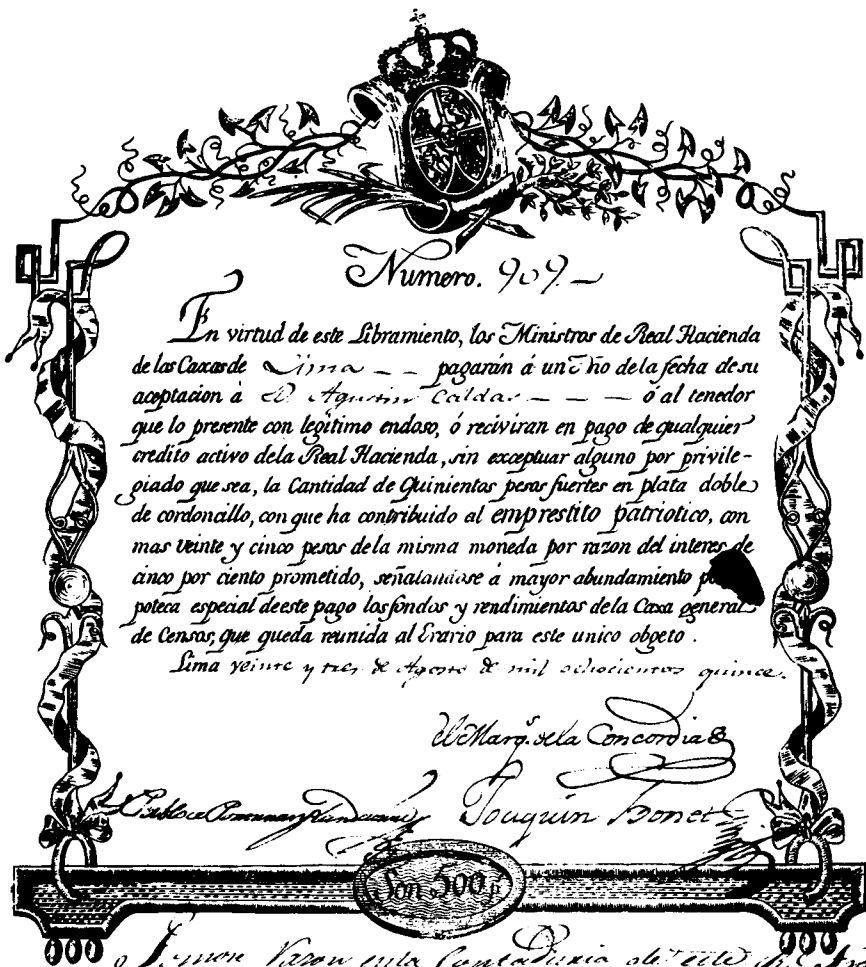 Numero. 909.
En virtud de este Libramiento, los Ministros de Real Hacienda
de las Caxas de Lima pagarán á un Año de la fecha de su
aceptacion á Dn. Agustin Caldas ó al tenedor
que lo presente con legitimo endoso, ó reciviran en pago de qualquier
credito activo dela Real Hacienda, sin exceptuar alguno por privile-
giado que sea, la Cantidad de Quinientos pesos fuertes en plata doble
de cordoncillo, con que ha contribuido al emprestito patriotico, con
mas veinte y cinco pesos dela misma moneda por razon del interes de
cinco por ciento prometido, señalandose á mayor abundamiento
poteca especial deeste pago los fondos y rendimientos dela Caxa general
de Censos, que queda reunida al Erario para este unico obgeto.
Lima veinte y tres de Agosto de mil ochocientos quince.
El Marqs. dela Concordia
Joaquin Bonet
Son 500 ps
Razon enla Contaduria de este